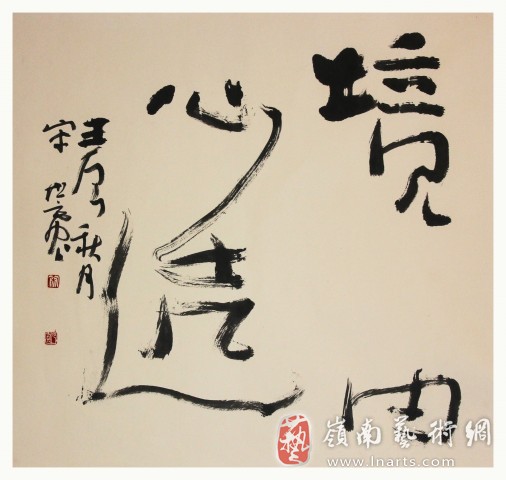 境由
心造
壬辰秋月
宋
嶺南藝術網
www.lnarts.com